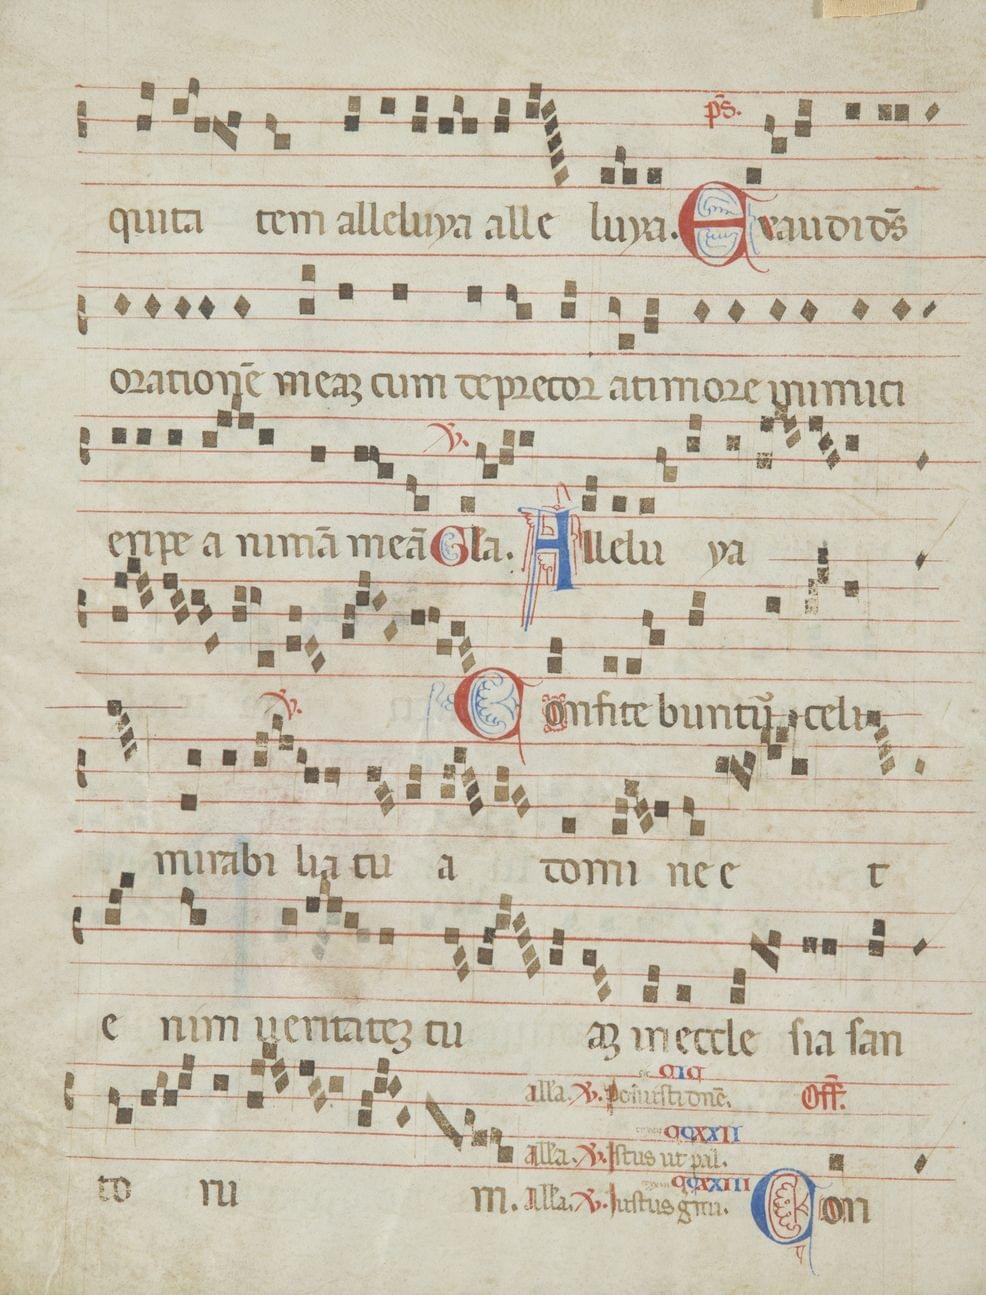 quita tem alleluya alle luya. ps̄. Exaudi ds̄
orationē meaꝫ cum deprecor a timore inimici
eripe a nimā meā ℣. Gla. Allelu ya
℣. Confitebuntur celi
mirabi lia tu a domi ne e t
e nim ueritateꝫ tu aꝫ in eccle sia san
to ru m. Alla. ℣. Off̄.
Alla. ℣. Iustus ut pal.
Alla. ℣. Iustus Con